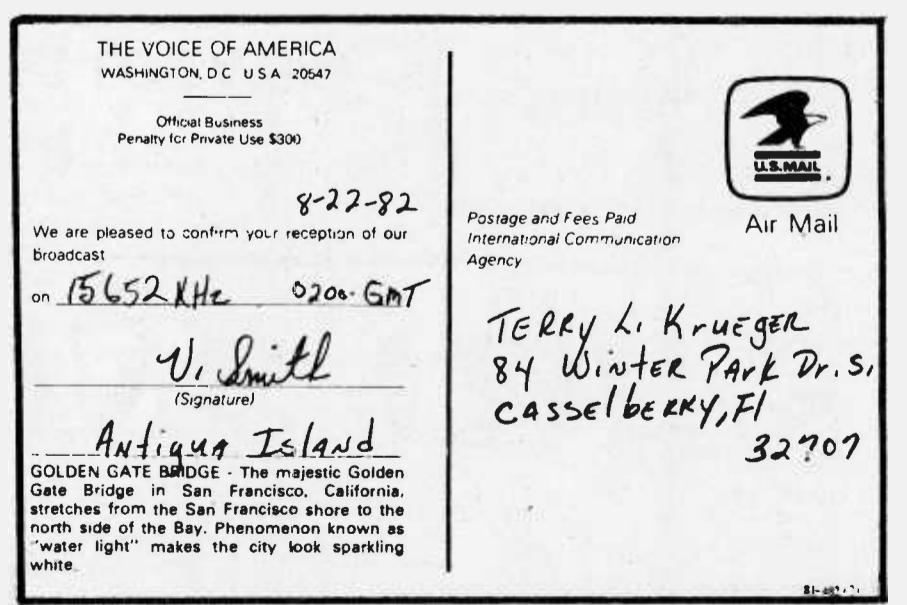 THE VOICE OF AMERICA
WASHINGTON, D C U S A 20547
Official Business
Penalty for Private Use $300
8-22-82
We are pleased to confirm your reception of our
broadcast
on 15652 KHz 0200 GMT
V. Smith
(Signature)
Antigua Island
GOLDEN GATE BRIDGE - The majestic Golden
Gate Bridge in San Francisco, California,
stretches from the San Francisco shore to the
north side of the Bay. Phenomenon known as
"water light" makes the city look sparkling
white.
U.S.MAIL
Air Mail
Postage and Fees Paid
International Communication
Agency
TERRY L. KrueGER
84 WINTER PArk Dr. S.
CASSElbERRY, Fl
32707